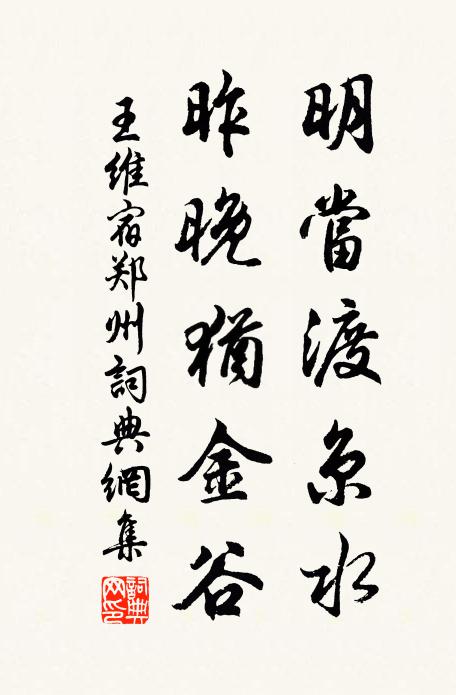 明當渡京水
昨晚猶金谷
王維宿郑州詞典網集
詞典网印